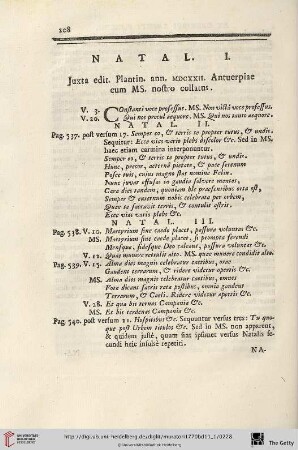 208
NATAL. I.
Juxta edit. Plantin. ann. MDCXXII. Antuerpiae
cum MS. nostro collatus.
V. 3. COnstanti voce professus. MS. Non victâ voce professus.
V. 20. Qui nos procul sequore. MS. Qui nos toute sequore.
NATAL. II.
Pag. 537. post versum 17. Semper eo, & terris te propter tutus, & undis.
Sequitur: Ecce vias vario plebs discolor &c. Sed in MS.
haec etiam carmina interponuntur.
Semper eo, & terris te propter tutus, & undis.
Hunc, precor, aeternâ pietate, & pace serenum
Posce tuis, cujus magno stat nomine Felix.
Nunc juvat effusas in gaudia solvere mentes,
Cara dies tandem, quoniam hic praesentibus orta est,
Semper & externum nobis celebrata per orbem,
Quae te sacravit terris, & contulit astris.
Ecce vias vario plebs &c.
NATAL. III.
Pag. 538. V. 10. Martyrium sine caede placet, passura voluntas &c.
MS. Martyrium sine caede placet, si prompta ferendi
Mensque, fidesque Deo caleat, passura voluntas &c.
V. 12. Quas munere retulit alto. MS. quas munere condidit alto.
Pag. 539. V. 15. Alma dies magnis celebratur coetibus, omnes
Gaudent terrarum, & ridere videtur apertis &c.
MS. Alma dies magnis celebratur coetibus, omnes
Vota dicant sacris rata postibus, omnia gaudent
Terrarum, & Coeli. Ridere videtur apertis &c.
V. 28. Et qua bis ternas Campania &c.
MS. Et bis terdenas Campania &c.
Pag. 540. post versum 11. Hospitibus &c. Sequuntur versus tres: Tu quoque
post Urbem titulos &c. Sed in MS. non apparent,
& quidem justè, quare fiat ipsimet versus Natalis secundi
heic insulsè repetiti.
NA-
http://digi.ub.uni-heidelberg.de/diglit/muratori1770bd11_1/0228
The Getty